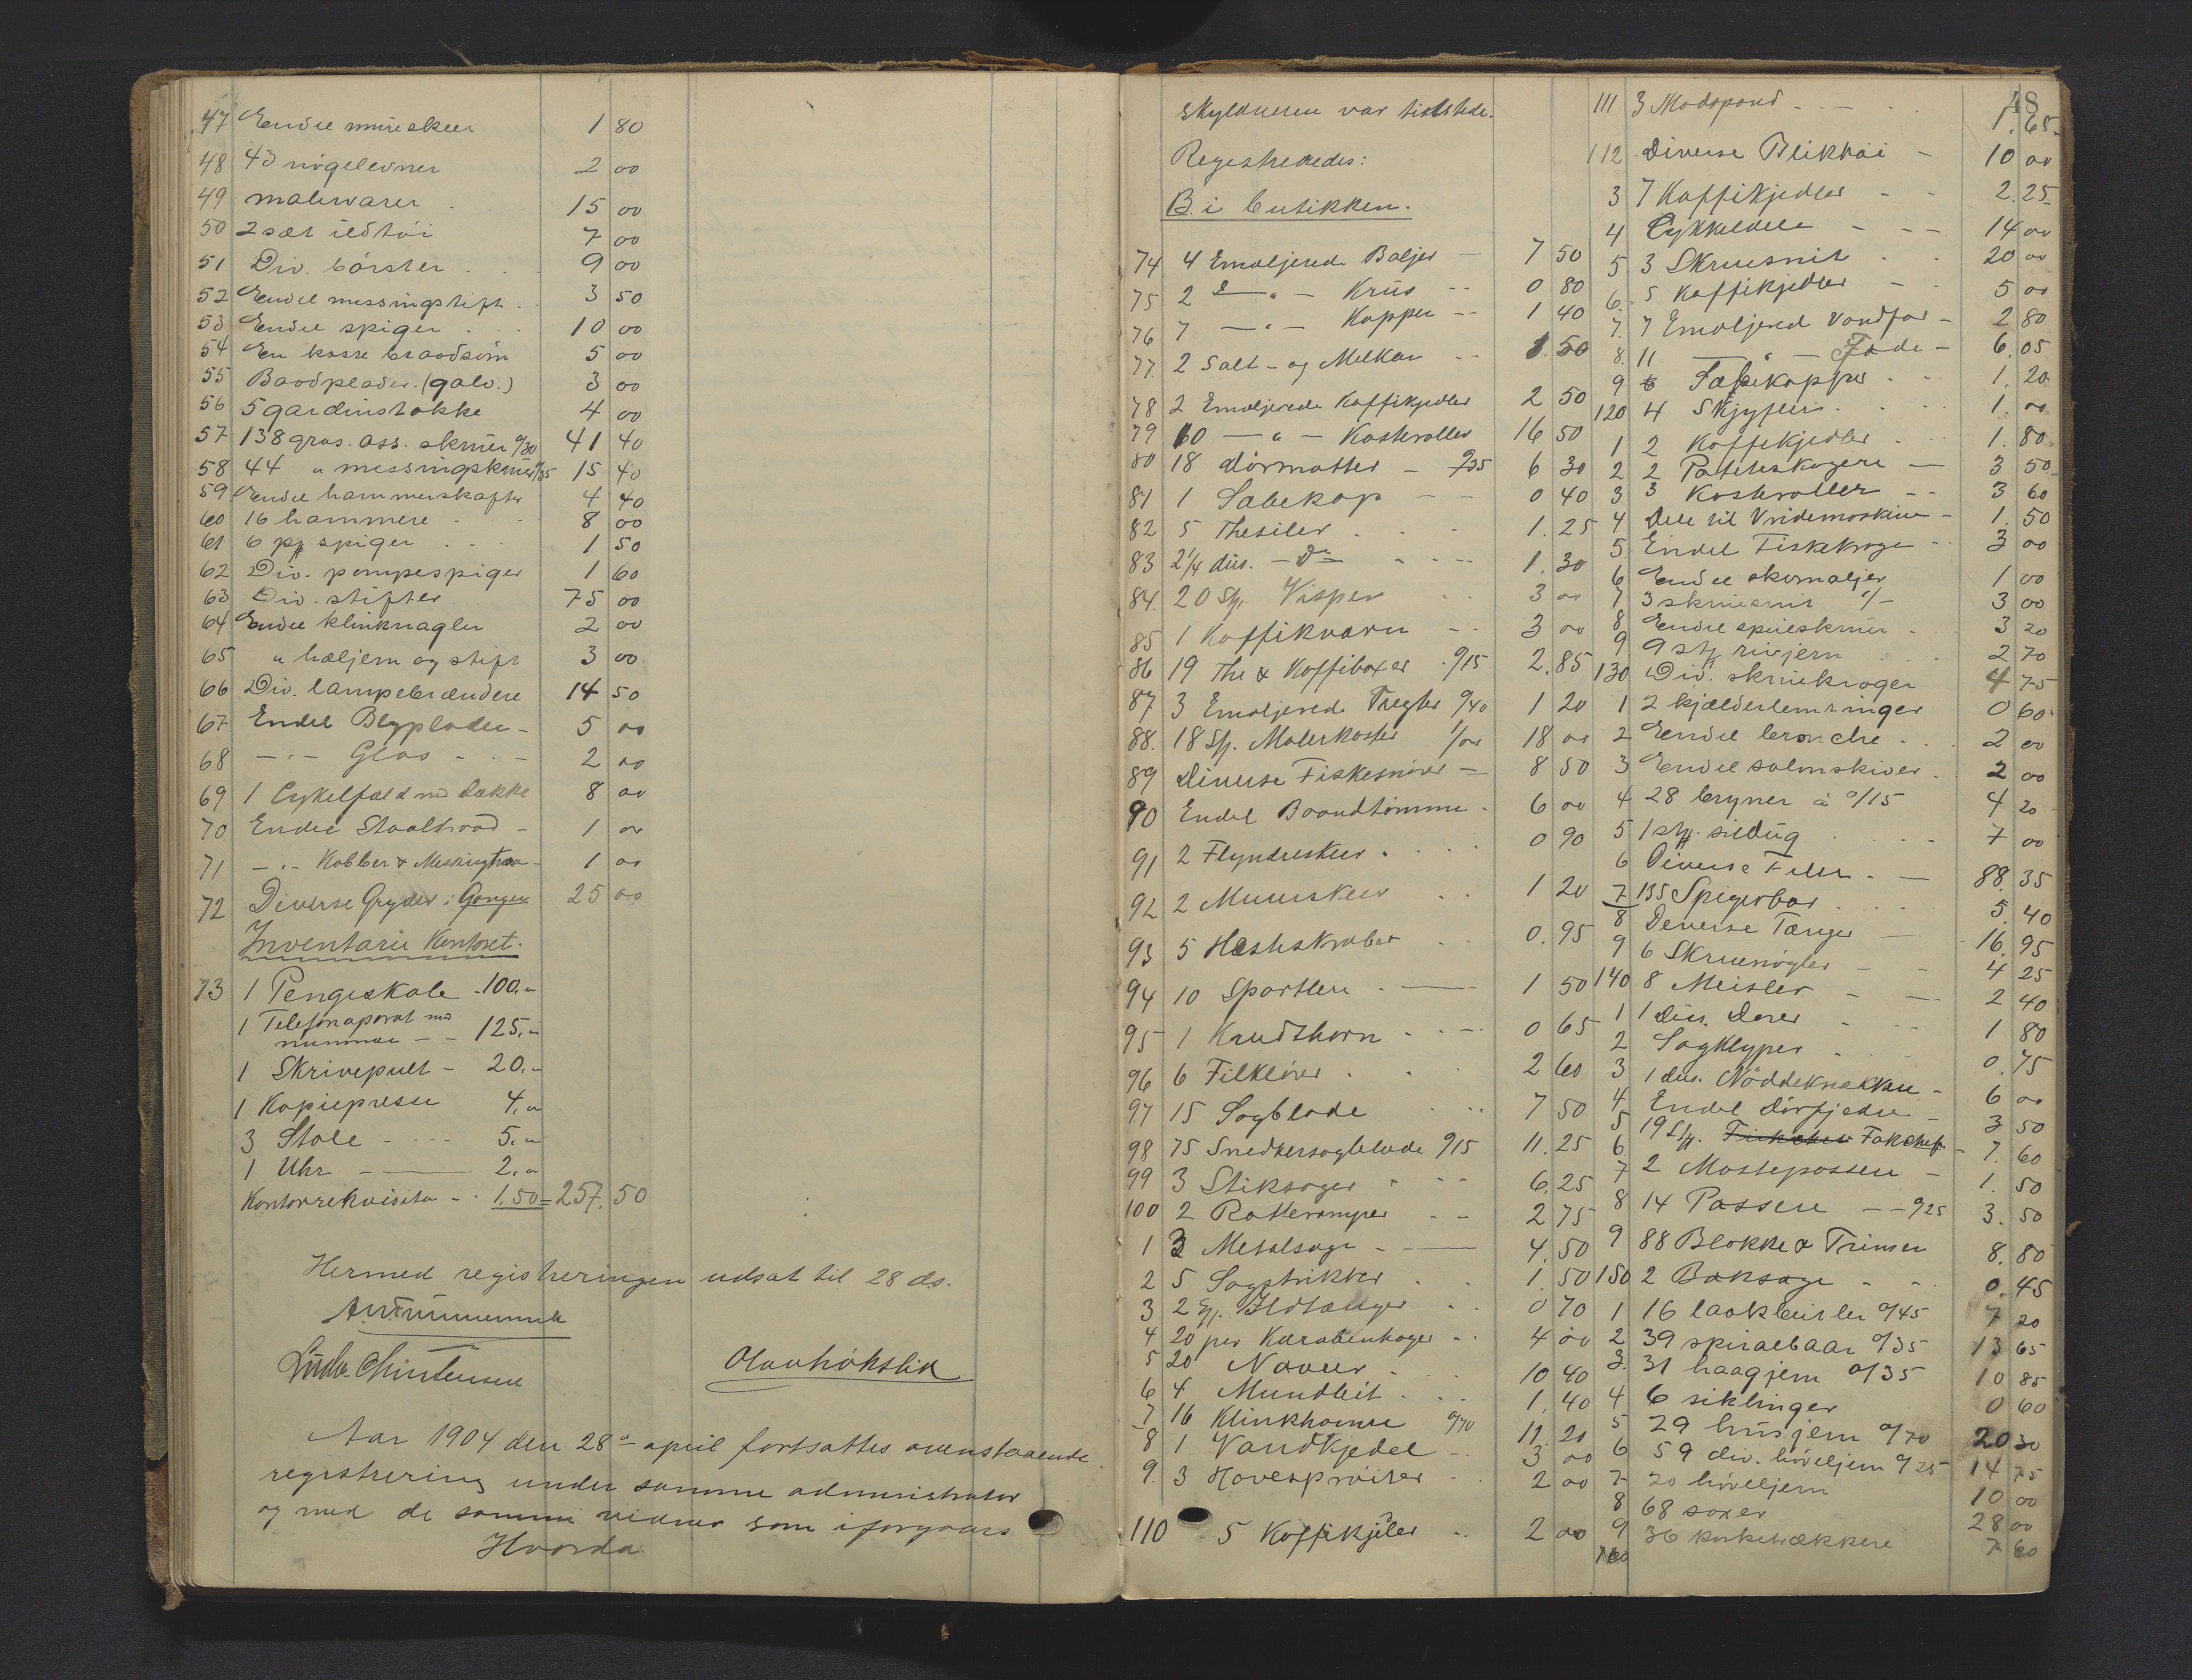 47 Endel mureskeer 1 80
48 43 nøgleevner 2 00
49 malervarer 15 00
50 2 sæt ildtøi 7 00
51 Div. børster 9 00
52 Endel messingstift 3 50
53 Endel spiger 10 00
54 En kasse braadsøm 5 00
55 Baadplader (galv.) 3 00
56 5 gardinstokke 4 00
57 138 gros. ass. skruer 0/30 41 40
58 44 " messingskruer 0/35 15 40
59 Endel hammerskafter 4 40
60 16 hammere 8 00
61 6 pk spiger 1 50
62 Div. pompespiger 1 60
63 Div. stifter 75 00
64 Endel klinknagler 2 00
65 " hæljern og stift 3 00
66 Div. lampebrændere 14 50
67 Endel Blyplader - 5 00
68 - " - Glas - - 2 00
69 1 Cykelfæld med Dække 8 00
70 Endel Staaltraad - 1 00
71 - " - Kobber & Messingtraa - 1 00
72 Diverse Gryder i Gangen 25 00
Inventarie Kontoret.
73 1 Pengeskab 100. "
1 Telefonaparat med
nummer - - 125. "
1 Skrivepult - 20. "
1 Kopiepresse 4. "
3 Stole - - - 5. "
1 Uhr - 2. "
Kontorrekvisita - 1.50 = 257.50
Hermed registreringen udsat til 28 ds.
Ludv. Christensen
Aar 1904 den 28de april fortsattes ovenstaaende
registrering under samme administrator
og med de samme vidner som iforgaars
Hvorda
48
Skyldneren var tilstede.
Registreredes:
B. i butikken.
74 4 Emaljerede Baljer - 7 50
75 2 - " - Krus - - 0 80
76 7 - " - Kopper - - 1 40
77. 2 Salt- og Melkar - - 1. 50
78 2 Emaljerede Kaffikjedler 2 50
79 10 - " - Kasteroller 16 50
80 18 dørmatter - 0/35 6 30
81 1 Sæbekop - - 0 40
82 5 Thesiler 1. 25
83 2 1/4 dus. - Do - - - 1. 30
84. 20 St. Visper 3 00
85 1 Kaffikvarn - - 3 00
86 19 The & Kaffiboxer 0/15 2.85
87 3 Emaljerede Tregter 0/40 1 20
88. 18 St. Malerkoster 1/00 18 00
89 Diverse Fiskesnører - 8 50
90 Endel Baandtømmer 6 00
91 2 Flyndreskeer 0 90
92 2 Mureskeer 1 20
93 5 Hesteskraber 0. 95
94 10 Spartlere 1 50
95 1 Krudthorn 0 65
96 6 Filkløver 2 60
97 15 Sagblade 7 50
98 75 Snedkersagblade 0/15 11. 25
99 3 Stiksager 6. 25
100 2 Rottesvmper - - 2 75
1 3 Metalsage - 4. 50
2 5 Sagstrikker 1. 50
3 2 St. Ildtænger 0 70
4 20 par Karabenhager 4 00
5 20 Naver 10 40
6 4 Mundbit 1. 40
7 16 Klinkhamre 0/70 11. 20
8 1 Vandkjedel - 3 00
9. 3 Havesprøiter 2 00
110 5 Kaffikjeler 2 00
111 3 Madspand - - - 1. 65
112 Diverse Bliktøi - 10 00
3 7 Kaffikjedler - - 2. 25
4 Cykkeldele - - - 14 00
5 3 Skruesnit 20 00
6. 5 Kaffikjedler 5 00
7. 7 Emaljered Vandfar - 2 80
8. 11 - " - Fade - 6. 05
9 6 Fæfekopper 1. 20
120 4 Skjyfler 1. 00
1 2 Kaffekjedler 1. 80
2 2 Poteteskogere - 3 50
3 3 Kasteroller - - 3 60
4 Dele til Vridemaskine - 1. 50
5. Endel Fiskekroge 3 00
6 Endel skomaljer 1 00
7 3 skruesnit 1/- 3 00
8 Endel speilskruer 3 20
9 9 stk rivjern 2 70
130 Div. skruekroger 4 75
1 2 kjælderlemringer 0 60
2 Endel bronche 2 00
3 Endel salmskiver 2 00
4 28 bryner à 0/15 4 20
5 1 stk. sildug 7 00
6 Diverse Filer - 88. 35
7 135 Spigerbor 5. 40
8 Deverse Tænger 16. 95
9 6 Skruenøgler - - 4 25
140 8 Meisler - 2 40
1 1 Dus. Dorer 1 80
2 Sagklyper 0. 75
3 1 dus. Nøddeknækker - 6 00
4 Endel dørfjedre - 3 50
5 19 St. 7. 60
7 2 Mastepassere - 1. 50
8 14 Passere - - 0/25 3. 50
9 88 Blokke & Trinser 8. 80
150 2 Baksage 0. 45
1 16 laakbeisler 0/45 7 20
2 39 spiralbaar 0/35 13 65
3. 31 haagjern 0/35 10 85
4 6 siklinger 0 60
5 29 husjern 0/70 20 30
6 59 div. høveljern 0/25 14 75
7 20 høveljern 10 00
8 68 saxer 28 00
9 36 korketrækkere 7 60
160